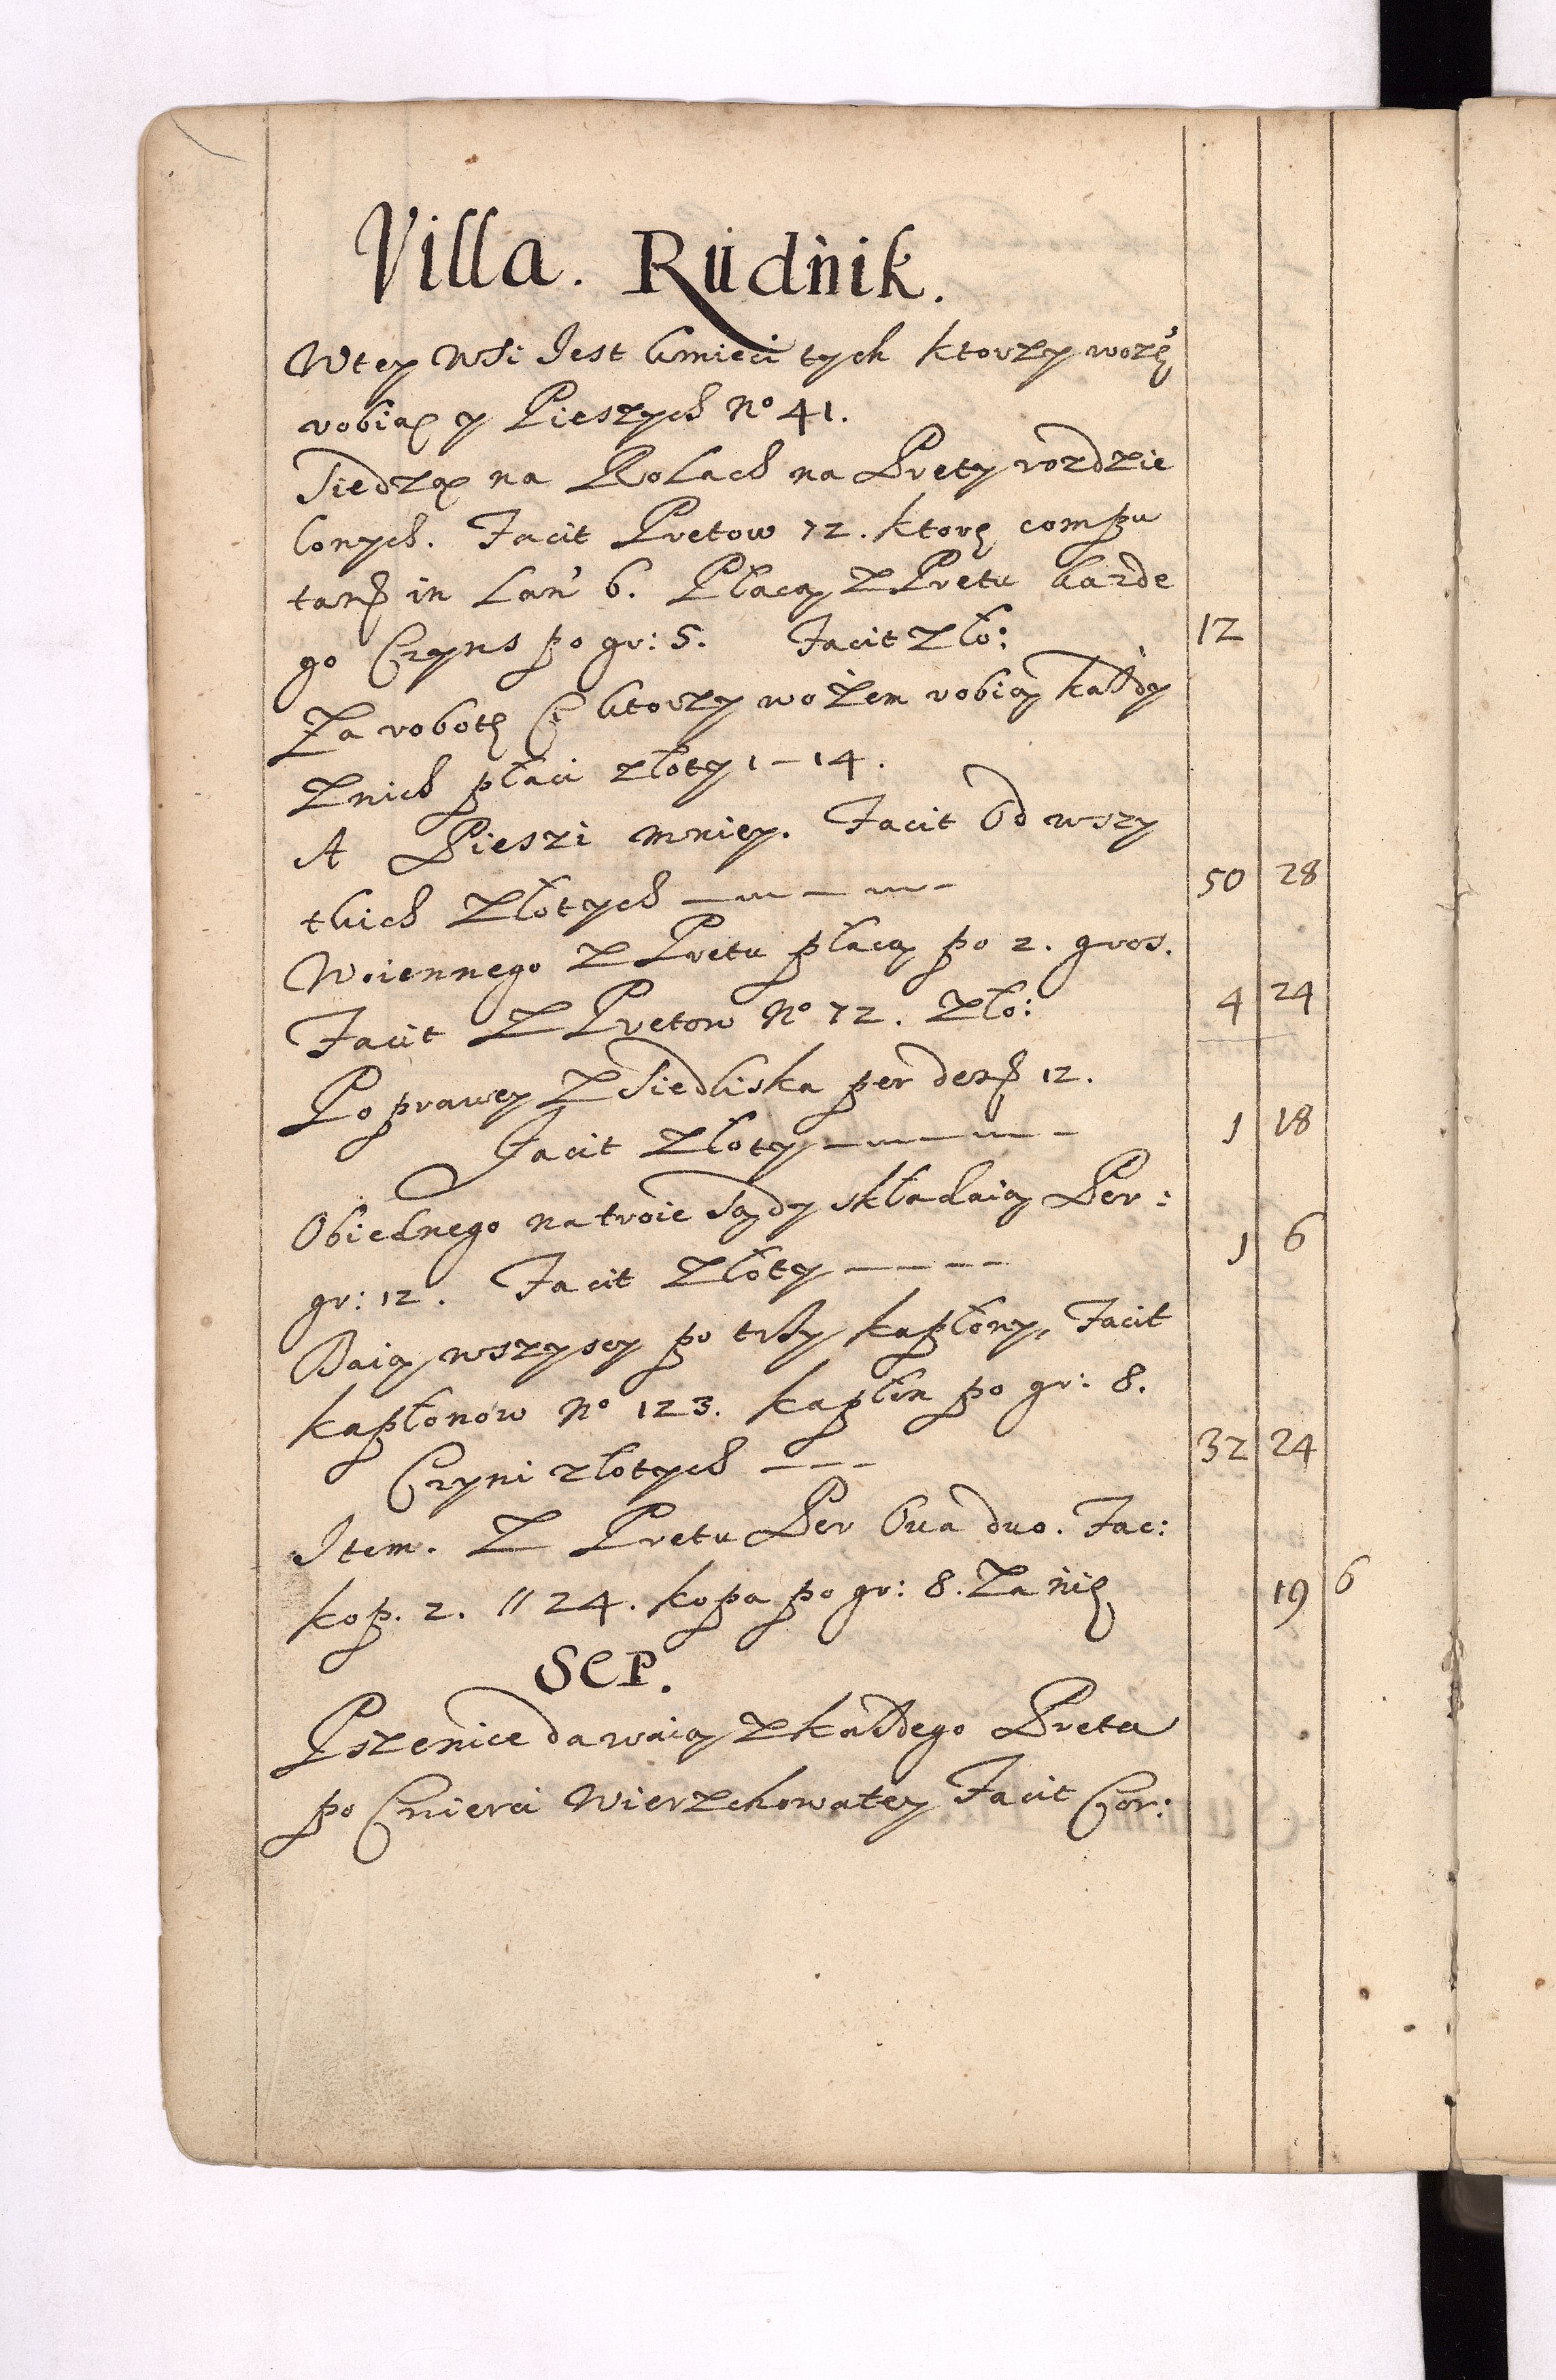 Villa. Rudnik.
Wtey Wsi Jest kmieci tych ktorzy wozę
robią y Pieszych No 41.
Siedzą na Rolach na Prety rozdzie
lonych. Facit Pretow 72. ktore compu
tant in Lan' 6. Płacą z Prętu kazde
go Czyns po gr: 5. Facit Zło: 12
Za robotę Ci ktorzy wozem robią każdy
z nich płaci złoty 1-14.
A Pieszi mniey. Facit Od wszy
tkich Złotych 50 28
Woiennego Z Prętu płacą po 2. gros.
Facit Z Prętow No 72. Zło: 4 24
Poprawey Z Siedliska per den 12.
Facit Złoty 1 18
Obiednego na troie Sądy składaią Per:
gr: 12. Facit Złoty 1 6
Daią wszyscy po trzy kapłony, Facit
kapłonow No 123. kapłon po gr: 8.
Czyni złotych 32 24
Item. Z Prętu Per Oua duo. Fac:
kop. 2. // 24. kopa po gr: 8. Za nię 19 6
SEP.
Pszenice dawaią z każdego Preta
po Cwierci Wierzchowatey Facit Cor: